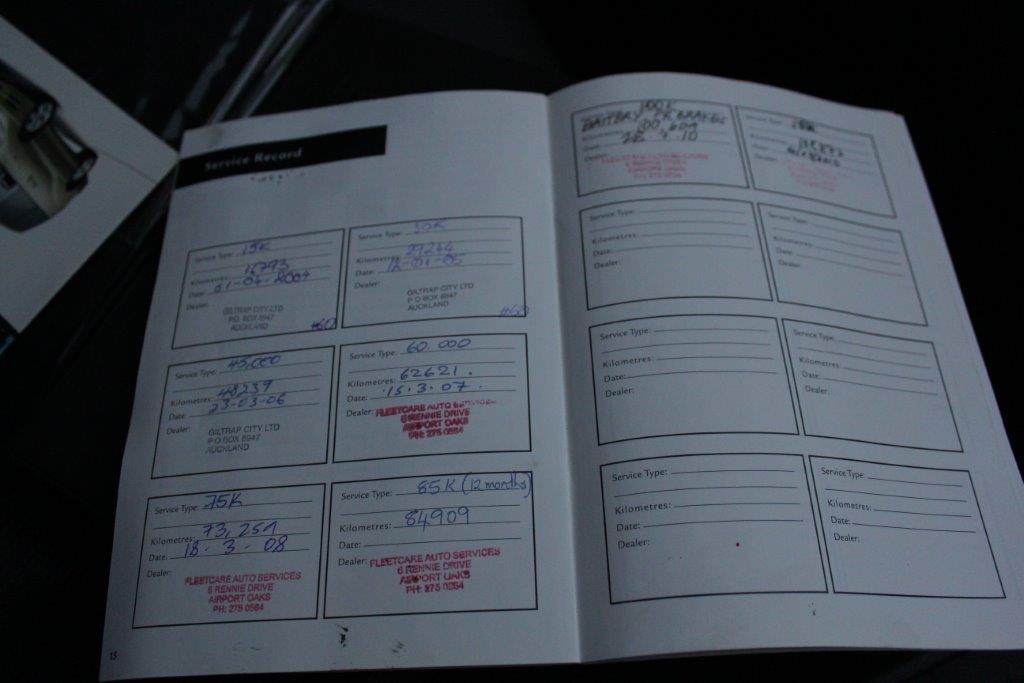 Service Record
Service Type: 15K
Kilometres:
Date: 01-04-2004
Dealer:
GILTRAP CITY LTD
P.O. BOX 6947
AUCKLAND
#60
Service Type: 30K
Kilometres: 29244
Date:
Dealer:
GILTRAP CITY LTD
P O BOX 6947
AUCKLAND
#60
Service Type: 45,000
Kilometres: 48239
Date: 23-03-06
Dealer:
GILTRAP CITY LTD
P O BOX 6947
AUCKLAND
Service Type: 60.000
Kilometres: 62621.
Date: 15.3.07.
Dealer: FLEETCARE AUTO SERVICES
6 RENNIE DRIVE
AIRPORT OAKS
PH: 275 0564
Service Type: 75K
Kilometres: 73,251
Date: 18.3.08
Dealer:
FLEETCARE AUTO SERVICES
6 RENNIE DRIVE
AIRPORT OAKS
PH: 275 0564
Service Type: 85K (12 months)
Kilometres: 84909
Date:
Dealer: FLEETCARE AUTO SERVICES
6 RENNIE DRIVE
AIRPORT OAKS
PH: 275 0564
15
100K
BATTERY BRAKES
100,609
28.7.10
Dealer:
FLEETCARE AUTO SERVICES
6 RENNIE DRIVE
AIRPORT OAKS
PH: 275 0564
Service Type:
Kilometres:
Date:
Dealer:
Service Type:
Kilometres:
Date:
Dealer:
Service Type:
Kilometres:
Date:
Dealer:
Service Type:
Kilometres:
Date:
Dealer:
Service Type:
Kilometres:
Date:
Dealer:
Service Type:
Kilometres:
Date:
Dealer:
Service Type:
Kilometres:
Date:
Dealer: